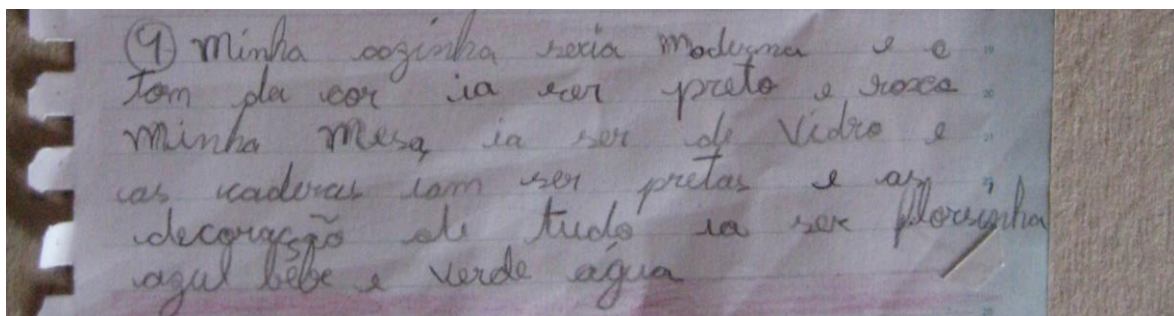 ④ Minha cozinha seria moderna e o
Tom da cor ia ser preto e roxo
Minha Mesa, ia ser de Vidro e
as caderas iam ser pretas e as
decoração de tudo ia ser florzinha
azul bebe e verde água